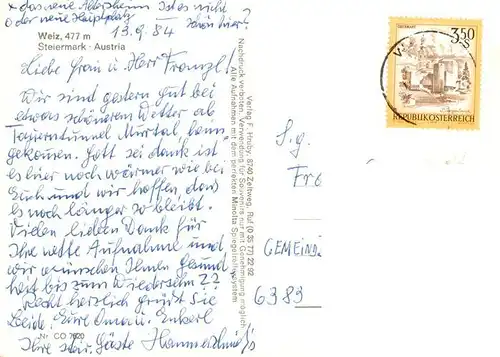 x das neue Altersheim Ist es nicht
o der neue Hauptplatz schön hier?
13.9.84
Weiz, 477 m
Steiermark · Austria
Liebe Frau u. Herr
Wir sind gestern gut bei
etwas schönerem Wetter ab
Tauerntunnel Mürtal, heim
gekommen. Gott sei dank ist
es hier noch wärmer wie bei
Euch und wir hoffen, dass
es noch länger so bleibt.
Vielen lieben Dank für
Ihre nette Aufnahme und
wir wünschen Ihnen Gesund
heit bis zum Wiedersehn
Recht herzlich grüßt Sie
beide, Eure Oma u. Enkerl
Nr. CO 7620
Ihre stei. Gäste
Verlag F. Hruby, 8740 Zeltweg, Ruf (0 35 77) 22 92
Nachdruck verboten, Verwendung für Souvenirs nur mit Genehmigung möglich
Alle Aufnahmen mit dem perfekten Minolta Spiegelreflexsystem
3.50
S
REPUBLIK ÖSTERREICH
S.g.
GEMEIND
6383